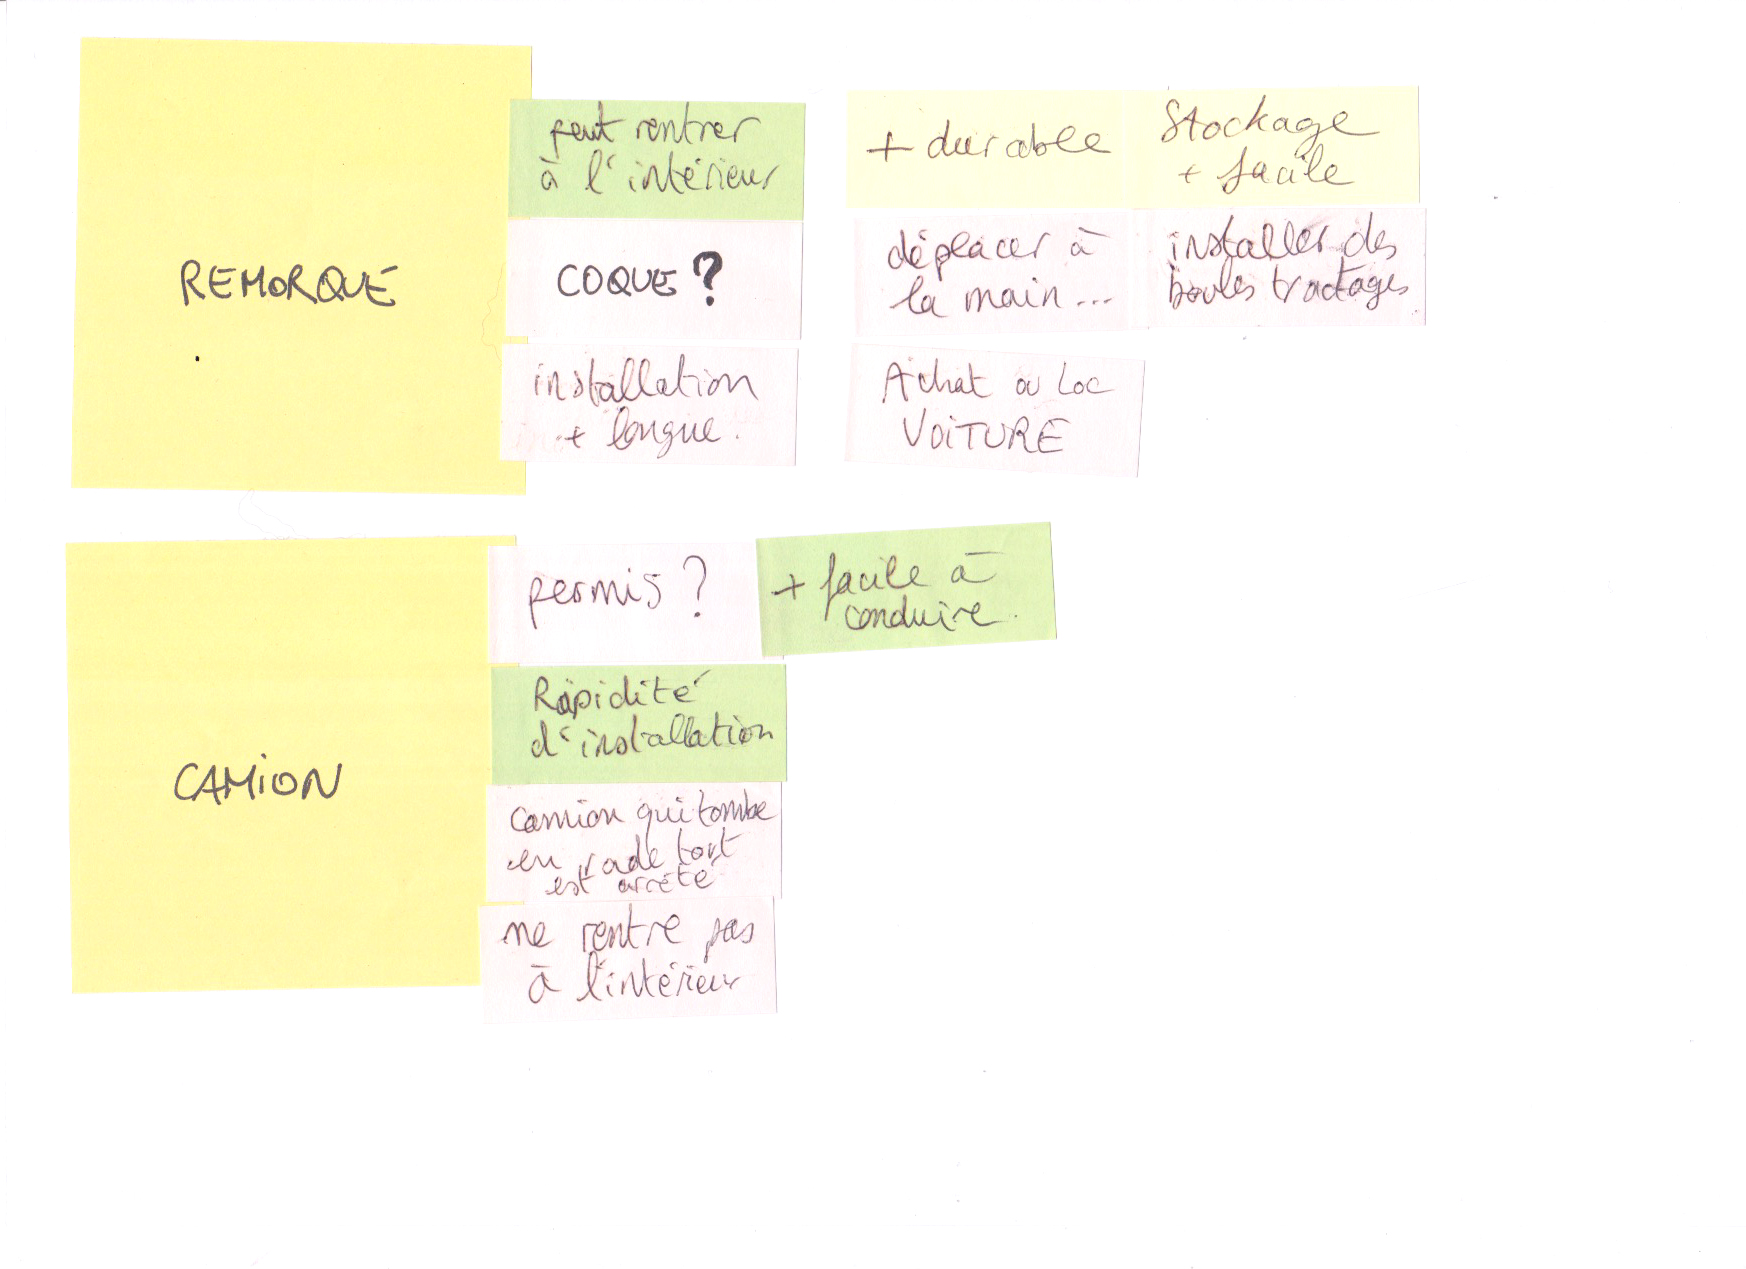 REMORQUE
peut rentrer
à l'intérieur
+ durable
Stockage
+ facile
COQUE ?
déplacer à
la main...
installer des
boules tractages
installation
+ longue.
Achat ou Loc
VOITURE
CAMION
permis ?
+ facile à
conduire.
Rapidité
d'installation
camion qui tombe
en rade tout
est arrêté
ne rentre pas
à l'intérieur